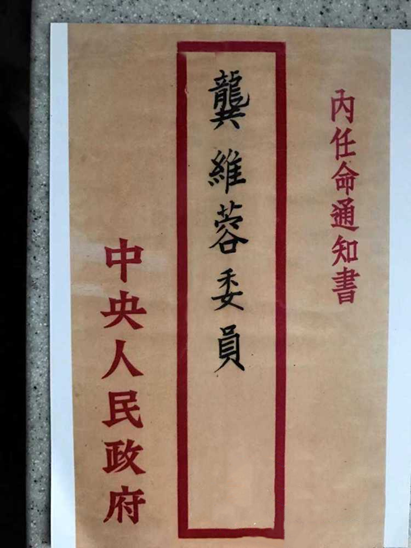 內任命通知書
龔維蓉委員
中央人民政府